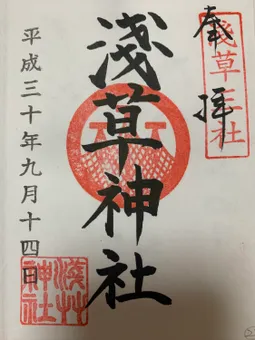 奉拝
浅草三社
淺草神社
平成三十年九月十四日
浅草神社